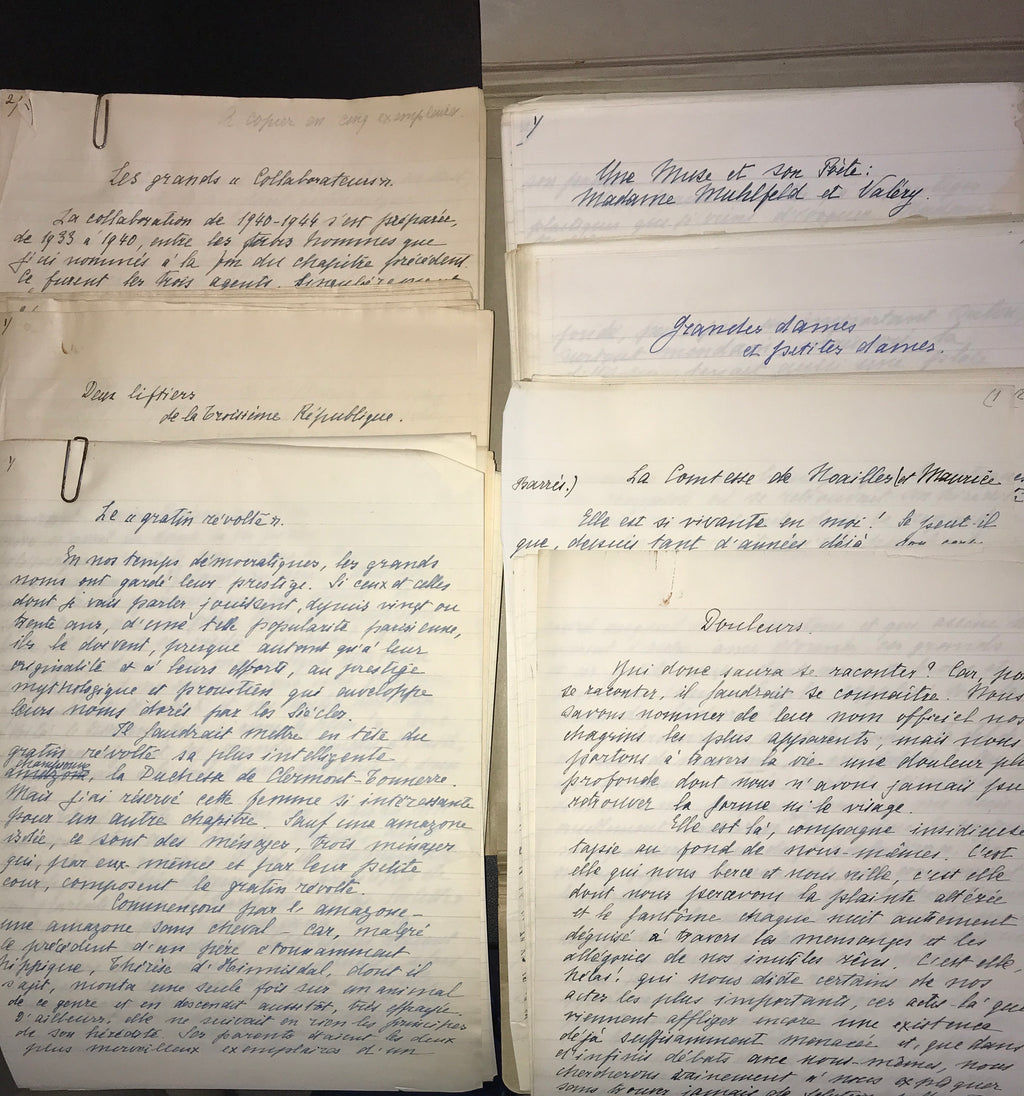 2)
A copier en cinq exemplaires.
Les grands « Collaborateurs ».
La collaboration de 1940-1944 s'est préparée,
de 1933 à 1940, entre les trois hommes que
j'ai nommés à la fin du chapitre précédent.
Ce furent les trois agents. Singulièrement
1)
Deux liftiers
de la Troisième République.
1)
Le « gratin révolté ».
En nos temps démocratiques, les grands
noms ont gardé leur prestige. Si ceux et celles
dont je vais parler jouissent, depuis vingt ou
trente ans, d'une telle popularité parisienne,
ils le doivent, presque autant qu'à leur
originalité et à leurs efforts, au prestige
mythologique et proustien qui enveloppe
leurs noms dorés par les siècles.
Il faudrait mettre en tête du
gratin révolté sa plus intelligente
championne
amazone, la Duchesse de Clermont-Tonnerre.
Mais j'ai réservé cette femme si intéressante
pour un autre chapitre. Sauf une amazone
isolée, ce sont des ménages, trois ménages
qui, par eux-mêmes et par leur petite
cour, composent le gratin révolté.
Commençons par l'amazone –
une amazone sans cheval – car, malgré
le précédent d'un père étonnamment
hippique, Thérèse d'Hinnisdal, dont il
s'agit, monta une seule fois sur un animal
de ce genre et en descendit aussitôt, très effrayée.
D'ailleurs, elle ne suivait en rien les principes
de son hérédité. Ses parents étaient les deux
plus merveilleux exemplaires d'un
1)
Une Muse et son Poète:
Madame Muhlfeld et Valéry.
Grandes dames
et petites dames.
(1
La Comtesse de Noailles (et Maurice
Barrès.)
Elle est si vivante en moi! Se peut-il
que, depuis tant d'années déjà
Douleurs.
Qui donc saura se raconter? Car, pour
se raconter, il faudrait se connaître. Nous
savons nommer de leur nom officiel nos
chagrins les plus apparents, mais nous
portons à travers la vie une douleur plus
profonde dont nous n'avons jamais pu
retrouver la forme ni le visage.
Elle est là, compagne insidieuse
tapie au fond de nous-mêmes. C'est
elle qui nous berce et nous veille, c'est elle
dont nous percevons la plainte altérée
et le fantôme chaque nuit autrement
déguisé à travers les mensonges et les
allégories de nos inutiles rêves. C'est elle,
hélas! qui nous dicte certains de nos
actes les plus importants, ces actes-là que
viennent affliger encore une existence
déjà suffisamment menacée et, que dans
d'infinis débats avec nous-mêmes, nous
chercherons vainement à nous expliquer
sans trouver jamais de